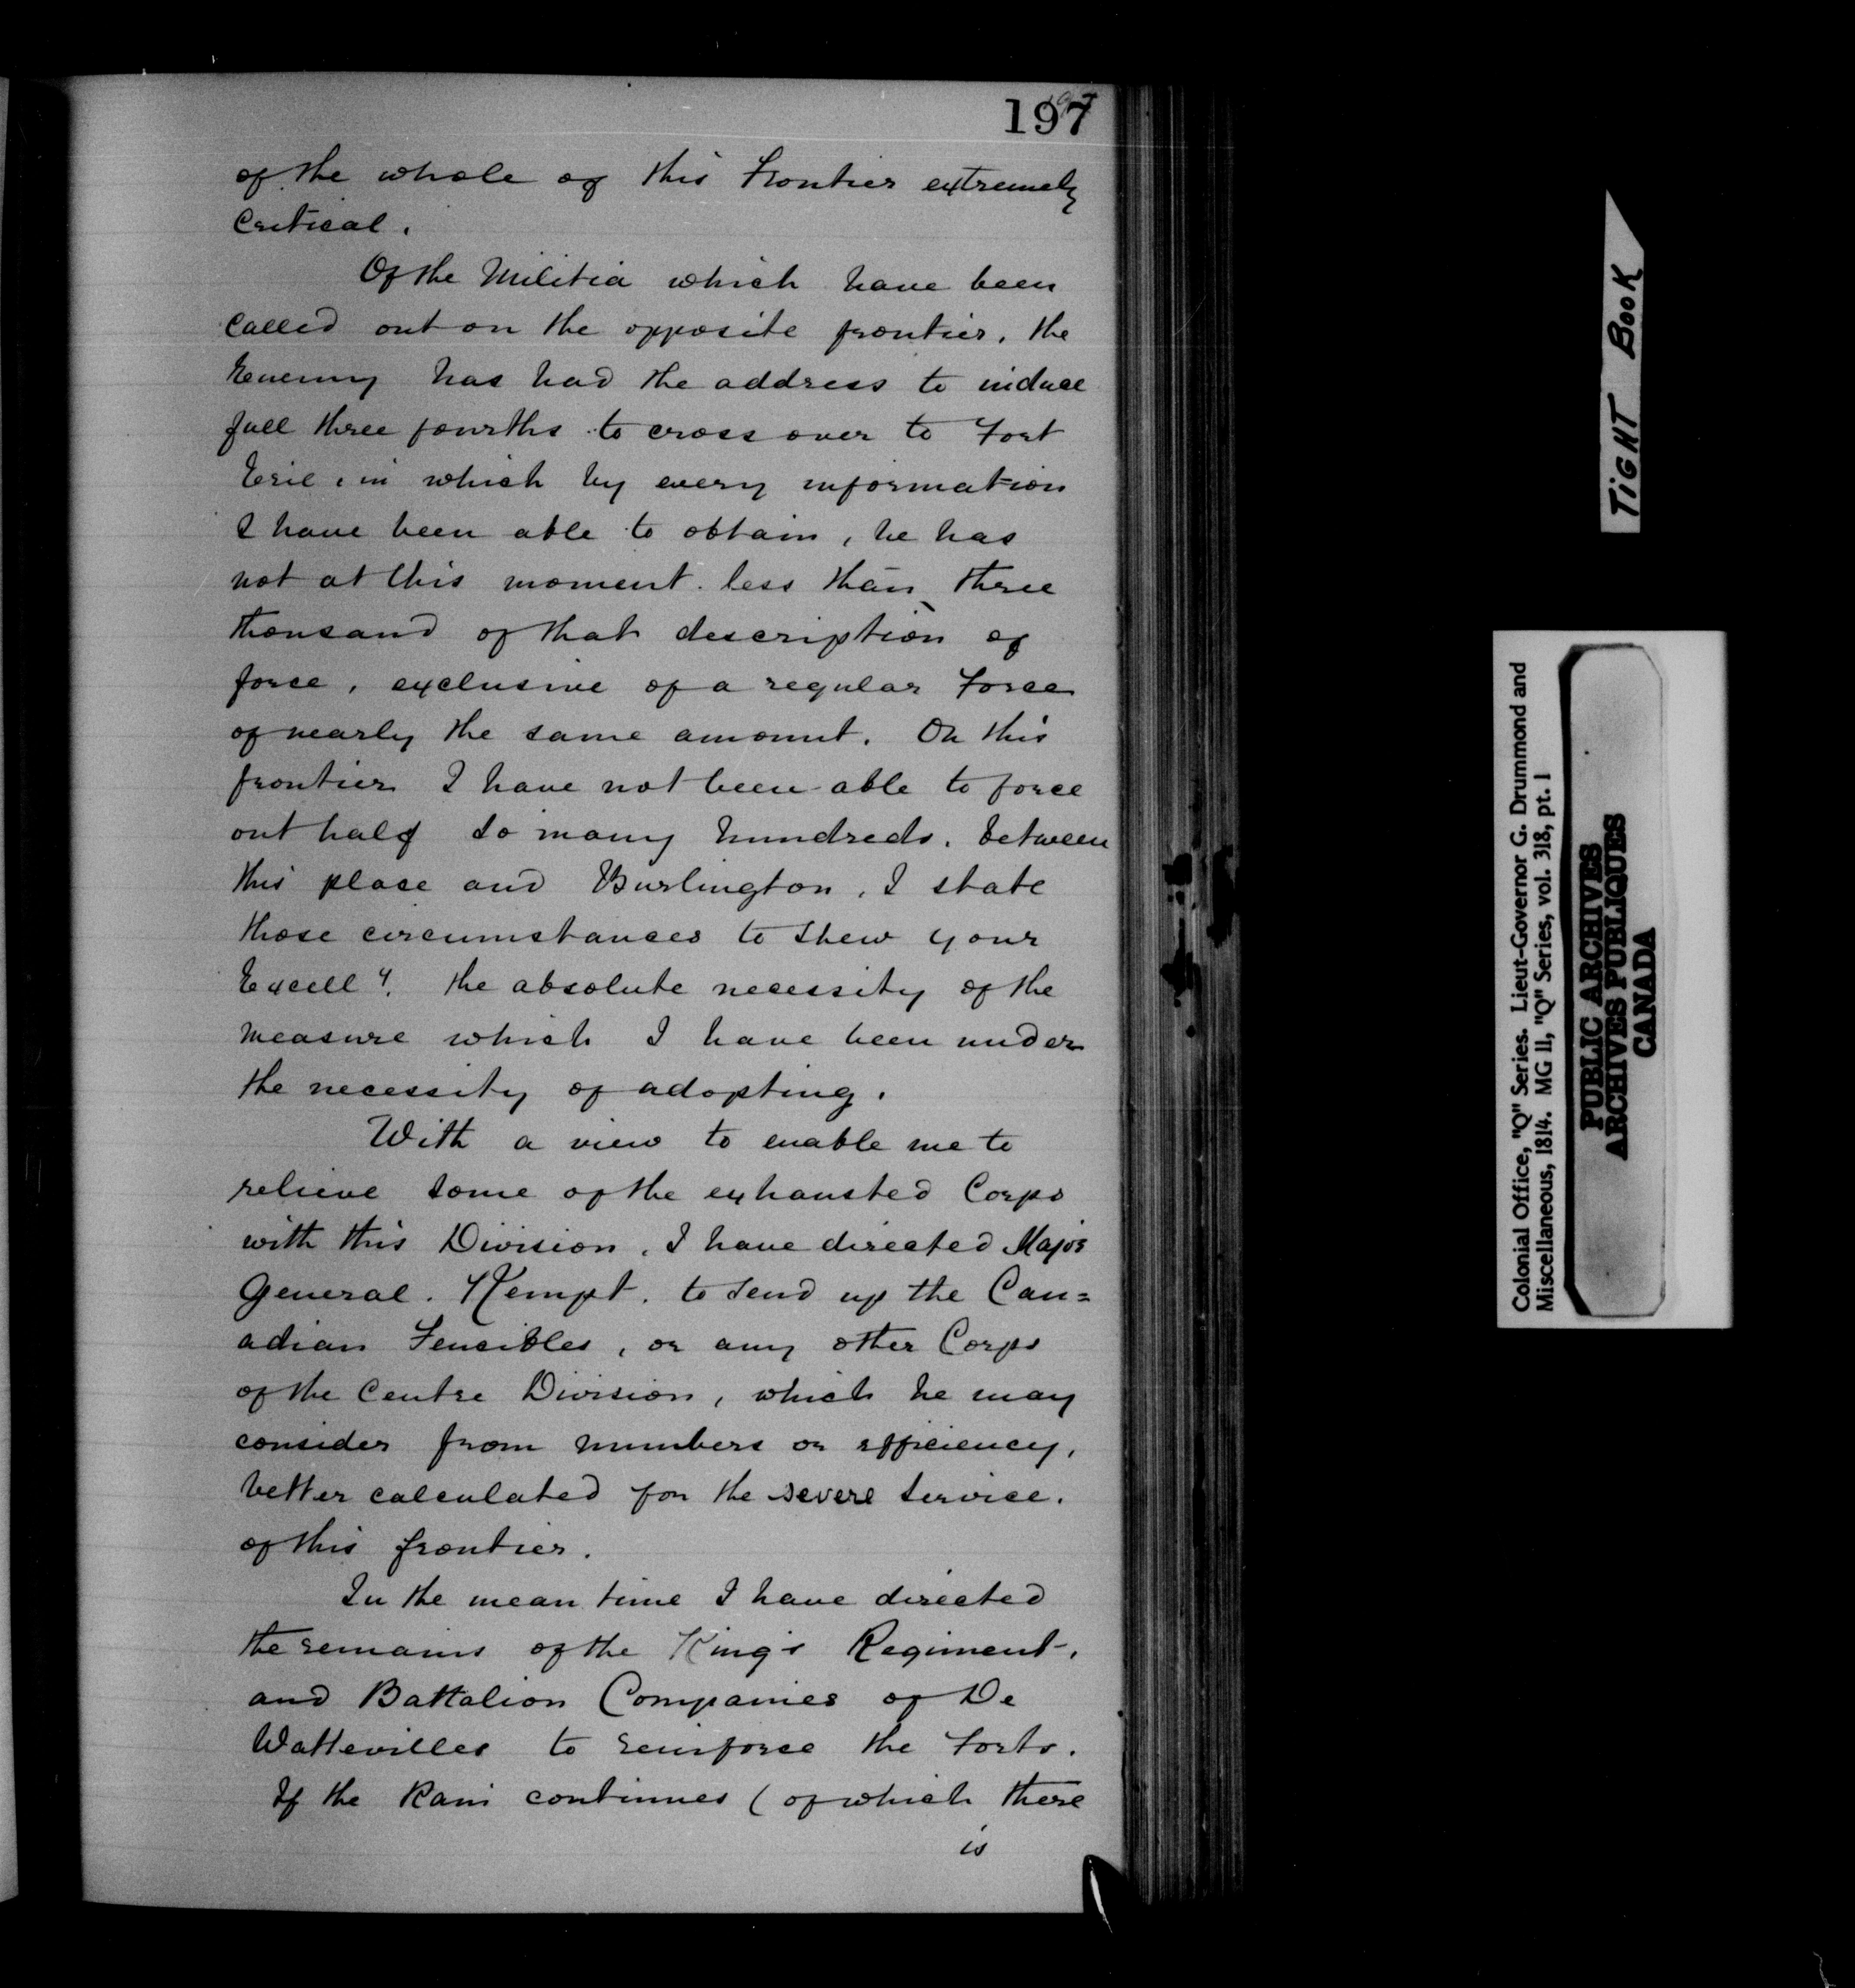 197
of the whole of this Frontier extremely
Critical.
Of the Militia which have been
called out on the opposite frontier, the
Enemy has had the address to induce
full three fourths to cross over to Fort
Erie, in which by every information
I have been able to obtain, he has
not at this moment less than three
thousand of that description of
force, exclusive of a regular Force
of nearly the same amount. On this
frontier I have not been able to force
out half so many hundreds, between
this place and Burlington, I state
those circumstances to shew your
Excell'y. the absolute necessity of the
measure which I have been under
the necessity of adopting.
With a view to enable me to
relieve some of the exhausted Corps
with this Division, I have directed Major
General. Kempt. to send up the Can=
adian Fencibles, or any other Corps
of the Centre Division, which he may
consider from numbers or efficiency,
better calculated for the severe service.
of this frontier.
In the mean time I have directed
the remains of the King's Regiment,
and Battalion Companies of De
Wattevilles to reinforce the Forts.
If the Rain continues (of which there
is
TIGHT BOOK
Colonial Office, "Q" Series. Lieut-Governor G. Drummond and
Miscellaneous, 1814. MG 11, "Q" Series, vol. 318, pt. 1
PUBLIC ARCHIVES
ARCHIVES PUBLIQUES
CANADA